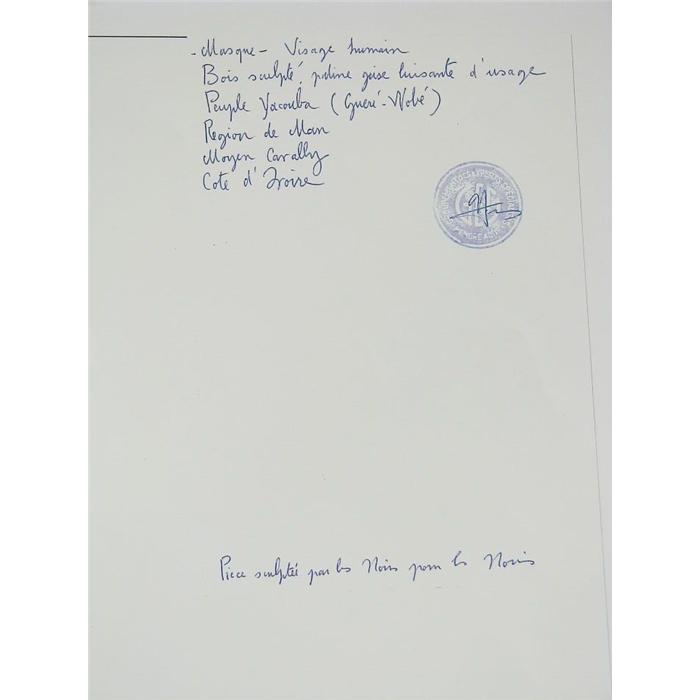 - Masque - Visage humain
Bois sculpté, patine grise luisante d'usage
Peuple Yacouba (Gueré-Wobé)
Region de Man
Moyen Cavally
Cote d'Ivoire
Piece sculptée par les Noirs pour les Noirs